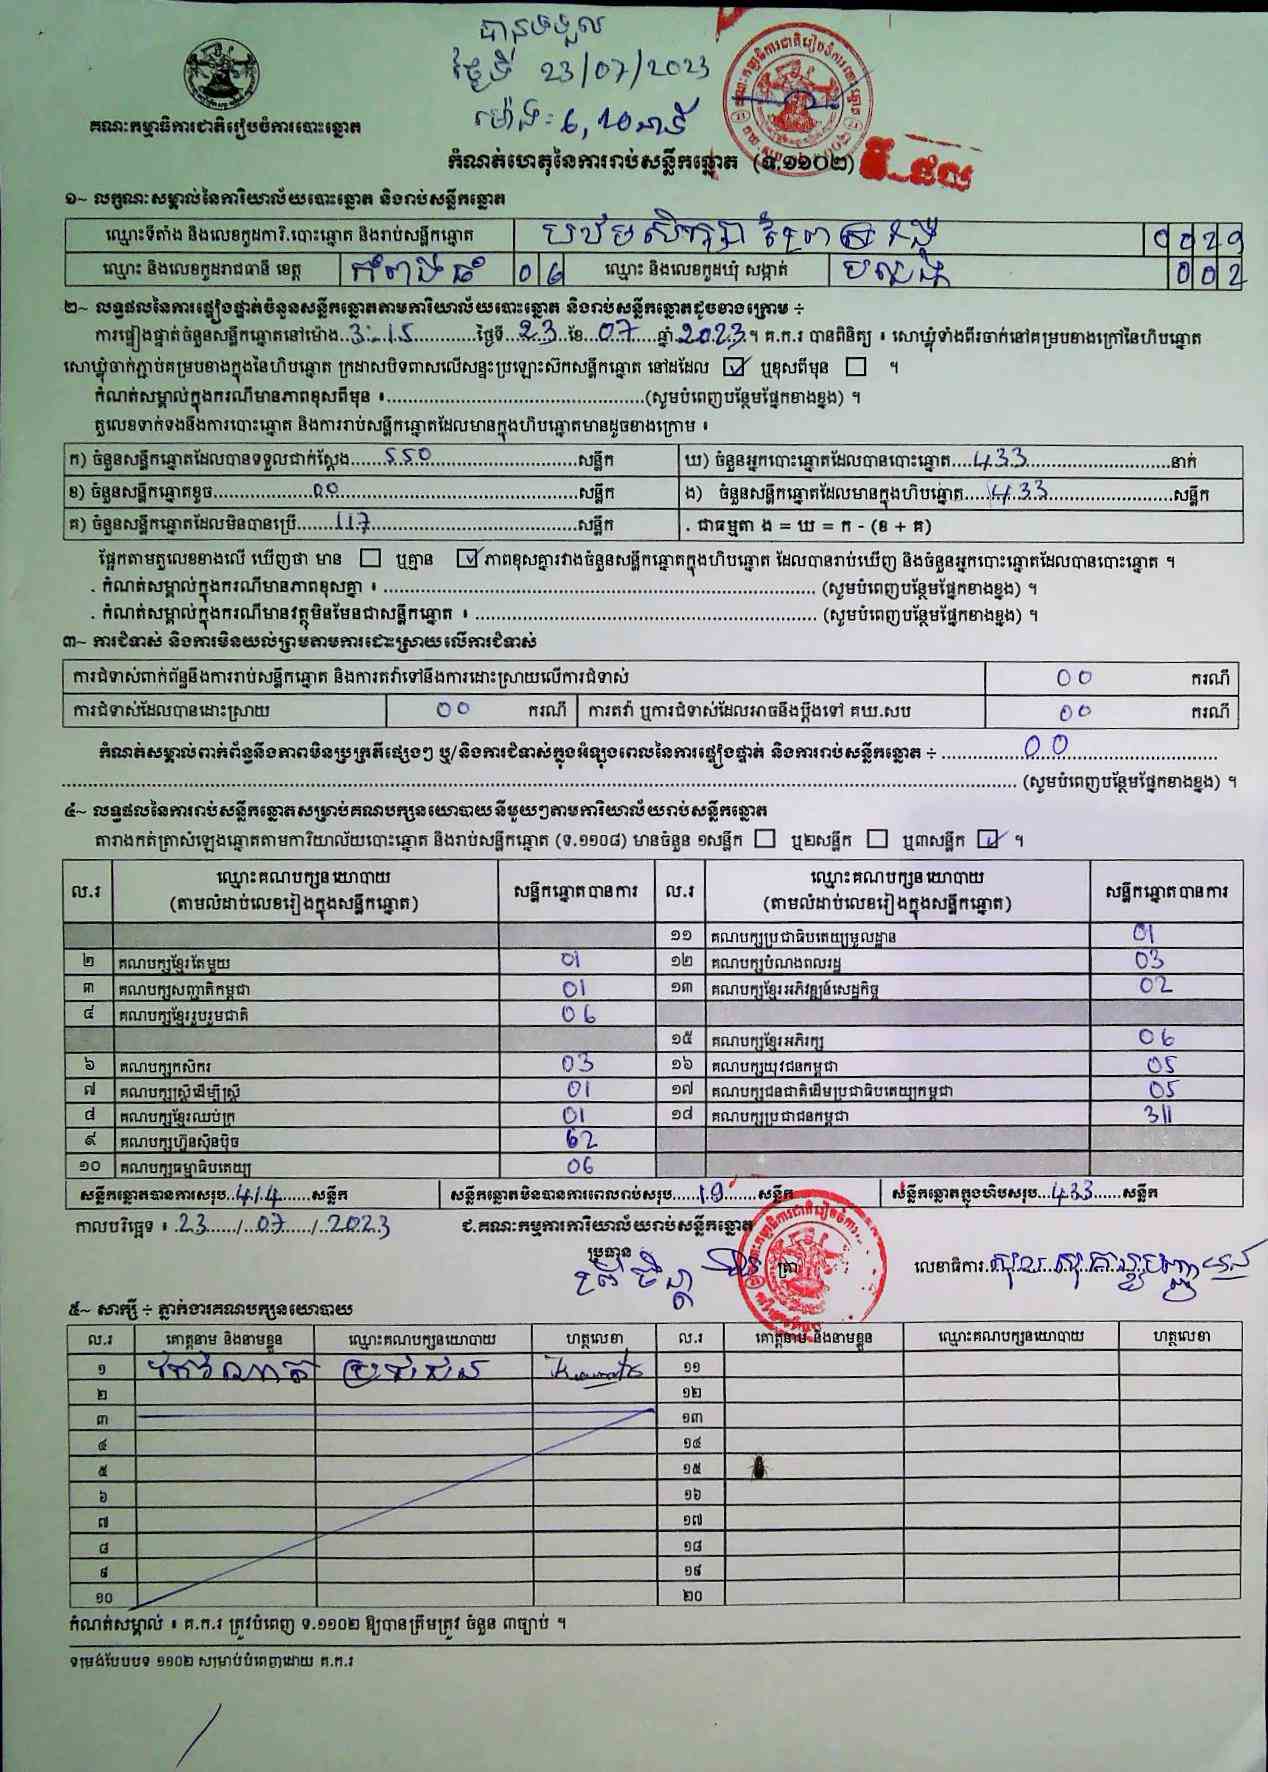 បានទទួល
ថ្ងៃទី 23/07/2023
ម៉ោង: 6,20នាទី
គណៈកម្មាធិការជាតិរៀបចំការបោះឆ្នោត
កំណត់ហេតុនៃការរាប់សន្លឹកឆ្នោត (ទ.១១០២)
១~ លក្ខណៈសម្គាល់នៃការិយាល័យបោះឆ្នោត និងរាប់សន្លឹកឆ្នោត
ឈ្មោះទីតាំង និងលេខកូដការិ.បោះឆ្នោត និងរាប់សន្លឹកឆ្នោត បឋមសិក្សា 0029
ឈ្មោះ និងលេខកូដរាជធានី ខេត្ត កំពង់ធំ 06 ឈ្មោះ និងលេខកូដឃុំ សង្កាត់ 002
២~ លទ្ធផលនៃការផ្ទៀងផ្ទាត់ចំនួនសន្លឹកឆ្នោតតាមការិយាល័យបោះឆ្នោត និងរាប់សន្លឹកឆ្នោតដូចខាងក្រោម ÷
ការផ្ទៀងផ្ទាត់ចំនួនសន្លឹកឆ្នោតនៅម៉ោង 3:15 ថ្ងៃទី 23 ខែ 07 ឆ្នាំ 2023 ។ គ.ក.រ បានពិនិត្យ ៖ សោឃ្លុំទាំងពីរចាក់នៅគម្របខាងក្រៅនៃហិបឆ្នោត
សោឃ្លុំចាក់ភ្ជាប់គម្របខាងក្នុងនៃហិបឆ្នោត ក្រដាសបិទពាសលើសន្ទះប្រឡោះស៊កសន្លឹកឆ្នោត នៅដដែល ☑ ឬខុសពីមុន ☐ ។
កំណត់សម្គាល់ក្នុងករណីមានភាពខុសពីមុន ៖ ........ (សូមបំពេញបន្ថែមផ្នែកខាងខ្នង) ។
តួលេខទាក់ទងនឹងការបោះឆ្នោត និងការរាប់សន្លឹកឆ្នោតដែលមានក្នុងហិបឆ្នោតមានដូចខាងក្រោម ៖
ក) ចំនួនសន្លឹកឆ្នោតដែលបានទទួលជាក់ស្តែង 550 សន្លឹក ឃ) ចំនួនអ្នកបោះឆ្នោតដែលបានបោះឆ្នោត 433 នាក់
ខ) ចំនួនសន្លឹកឆ្នោតខូច 00 សន្លឹក ង) ចំនួនសន្លឹកឆ្នោតដែលមានក្នុងហិបឆ្នោត 433 សន្លឹក
គ) ចំនួនសន្លឹកឆ្នោតដែលមិនបានប្រើ 117 សន្លឹក . ជាធម្មតា ង = ឃ = ក - (ខ + គ)
ផ្អែកតាមតួលេខខាងលើ ឃើញថា មាន ☐ ឬគ្មាន ☑ ភាពខុសគ្នារវាងចំនួនសន្លឹកឆ្នោតក្នុងហិបឆ្នោត ដែលបានរាប់ឃើញ និងចំនួនអ្នកបោះឆ្នោតដែលបានបោះឆ្នោត ។
. កំណត់សម្គាល់ក្នុងករណីមានភាពខុសគ្នា ៖ ........ (សូមបំពេញបន្ថែមផ្នែកខាងខ្នង) ។
. កំណត់សម្គាល់ក្នុងករណីមានវត្ថុមិនមែនជាសន្លឹកឆ្នោត ៖ ........ (សូមបំពេញបន្ថែមផ្នែកខាងខ្នង) ។
៣~ ការជំទាស់ និងការមិនយល់ព្រមតាមការដោះស្រាយលើការជំទាស់
ការជំទាស់ពាក់ព័ន្ធនឹងការរាប់សន្លឹកឆ្នោត និងការតវ៉ាទៅនឹងការដោះស្រាយលើការជំទាស់ 00 ករណី
ការជំទាស់ដែលបានដោះស្រាយ 00 ករណី ការតវ៉ា ឬការជំទាស់ដែលអាចនឹងប្តឹងទៅ គឃ.សប 00 ករណី
កំណត់សម្គាល់ពាក់ព័ន្ធនឹងភាពមិនប្រក្រតីផ្សេងៗ ឬ/និងការជំទាស់ក្នុងអំឡុងពេលនៃការផ្ទៀងផ្ទាត់ និងការរាប់សន្លឹកឆ្នោត ÷ 00
........ (សូមបំពេញបន្ថែមផ្នែកខាងខ្នង) ។
៤~ លទ្ធផលនៃការរាប់សន្លឹកឆ្នោតសម្រាប់គណបក្សនយោបាយនីមួយៗតាមការិយាល័យរាប់សន្លឹកឆ្នោត
តារាងកត់ត្រាសំឡេងឆ្នោតតាមការិយាល័យបោះឆ្នោត និងរាប់សន្លឹកឆ្នោត (ទ.១១០៨) មានចំនួន ១សន្លឹក ☐ ឬ២សន្លឹក ☐ ឬ៣សន្លឹក ☑ ។
ល.រ ឈ្មោះគណបក្សនយោបាយ (តាមលំដាប់លេខរៀងក្នុងសន្លឹកឆ្នោត) សន្លឹកឆ្នោតបានការ ល.រ ឈ្មោះគណបក្សនយោបាយ (តាមលំដាប់លេខរៀងក្នុងសន្លឹកឆ្នោត) សន្លឹកឆ្នោតបានការ
១១ គណបក្សប្រជាធិបតេយ្យមូលដ្ឋាន 01
២ គណបក្សខ្មែរតែមួយ 01 ១២ គណបក្សបំណងពលរដ្ឋ 03
៣ គណបក្សសញ្ជាតិកម្ពុជា 01 ១៣ គណបក្សខ្មែរអភិវឌ្ឍន៍សេដ្ឋកិច្ច 02
៤ គណបក្សខ្មែររួបរួមជាតិ 06
១៥ គណបក្សខ្មែរអភិរក្ស 06
៦ គណបក្សកសិករ 03 ១៦ គណបក្សយុវជនកម្ពុជា 05
៧ គណបក្សស្ត្រីដើម្បីស្ត្រី 01 ១៧ គណបក្សជនជាតិដើមប្រជាធិបតេយ្យកម្ពុជា 05
៨ គណបក្សខ្មែរឈប់ក្រ 01 ១៨ គណបក្សប្រជាជនកម្ពុជា 311
៩ គណបក្សហ៊្វុនស៊ិនប៉ិច 62
១០ គណបក្សធម្មាធិបតេយ្យ 06
សន្លឹកឆ្នោតបានការសរុប 414 សន្លឹក សន្លឹកឆ្នោតមិនបានការពេលរាប់សរុប 19 សន្លឹក សន្លឹកឆ្នោតក្នុងហិបសរុប 433 សន្លឹក
កាលបរិច្ឆេទ ៖ 23/07/2023 ជ.គណៈកម្មការការិយាល័យរាប់សន្លឹកឆ្នោត
ប្រធាន ត្រា លេខាធិការ
៥~ សាក្សី ÷ ភ្នាក់ងារគណបក្សនយោបាយ
ល.រ គោត្តនាម និងនាមខ្លួន ឈ្មោះគណបក្សនយោបាយ ហត្ថលេខា ល.រ គោត្តនាម និងនាមខ្លួន ឈ្មោះគណបក្សនយោបាយ ហត្ថលេខា
១ ប្រជាជន ១១
២ ១២
៣ ១៣
៤ ១៤
៥ ១៥
៦ ១៦
៧ ១៧
៨ ១៨
៩ ១៩
១០ ២០
កំណត់សម្គាល់ ៖ គ.ក.រ ត្រូវបំពេញ ទ.១១០២ ឱ្យបានត្រឹមត្រូវ ចំនួន ៣ច្បាប់ ។
ទម្រង់បែបបទ ១១០២ សម្រាប់បំពេញដោយ គ.ក.រ